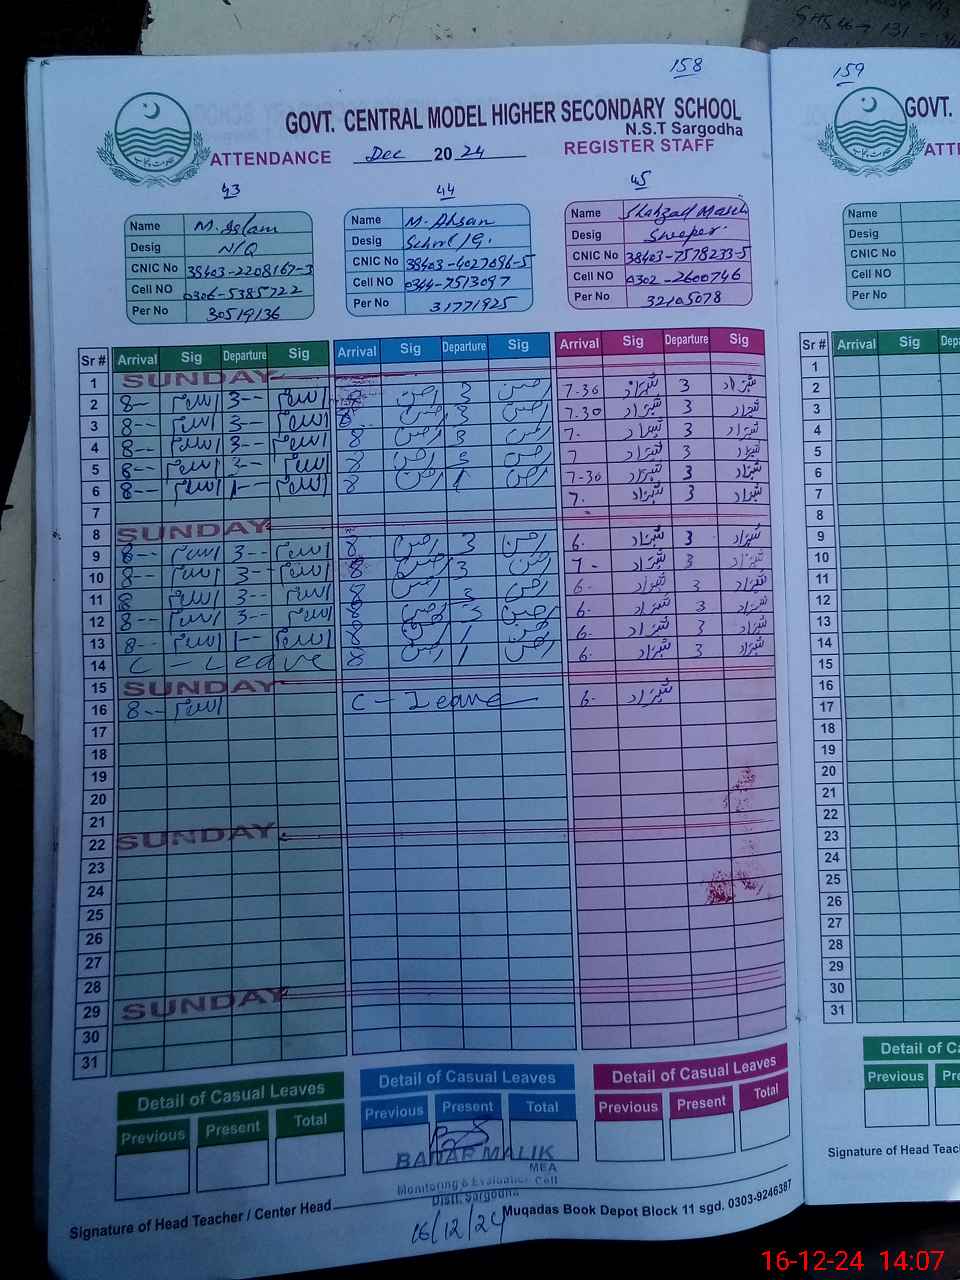 158
GOVT. CENTRAL MODEL HIGHER SECONDARY SCHOOL
N.S.T Sargodha
ATTENDANCE Dec 20 24 REGISTER STAFF
43 44 45
Name M. Aslam
Desig N/Q
CNIC No 38403-2208167-3
Cell NO 0306-5385722
Per No 30519136
Name M. Ahsan
Desig School/G.
CNIC No 38403-4027096-5
Cell NO 0344-7513097
Per No 31771925
Name Shahzad Masih
Desig Sweeper
CNIC No 38403-7578233-5
Cell NO 0302-2600746
Per No 32105078
Sr # Arrival Sig Departure Sig Arrival Sig Departure Sig Arrival Sig Departure Sig
1 SUNDAY
2 8-- اسلم 3-- اسلم 8 احسن 3 احسن 7-30 شہزاد 3 شہزاد
3 8-- اسلم 3-- اسلم 8 احسن 3 احسن 7.30 شہزاد 3 شہزاد
4 8-- اسلم 3-- اسلم 8 احسن 3 احسن 7. شہزاد 3 شہزاد
5 8-- اسلم 3-- اسلم 8 احسن 3 احسن 7 شہزاد 3 شہزاد
6 8-- اسلم 1-- اسلم 8 احسن 1 احسن 7-30 شہزاد 3 شہزاد
7 7. شہزاد 3 شہزاد
8 SUNDAY
9 8-- اسلم 3-- اسلم 8 احسن 3 احسن 6. شہزاد 3 شہزاد
10 8-- اسلم 3-- اسلم 8 احسن 3 احسن 7. شہزاد 3 شہزاد
11 8 اسلم 3-- اسلم 8 احسن 3 احسن 6. شہزاد 3 شہزاد
12 8-- اسلم 3-- اسلم 8 احسن 3 احسن 6. شہزاد 3 شہزاد
13 8-- اسلم 1-- اسلم 8 احسن 1 احسن 6. شہزاد 3 شہزاد
14 C - Leave 8 احسن 1 احسن 6. شہزاد 3 شہزاد
15 SUNDAY
16 8-- اسلم C - Leave 6. شہزاد
17
18
19
20
21
22 SUNDAY
23
24
25
26
27
28
29 SUNDAY
30
31
Detail of Casual Leaves Detail of Casual Leaves Detail of Casual Leaves
Previous Present Total Previous Present Total Previous Present Total
BABAR MALIK
MEA
Monitoring & Evaluation Cell
Distt. Sargodha
Signature of Head Teacher / Center Head
Muqadas Book Depot Block 11 sgd. 0303-9246387
16/12/24
159
GOVT.
Name
Desig
CNIC No
Cell NO
Per No
Sr # Arrival Sig
1
2
3
4
5
6
7
8
9
10
11
12
13
14
15
16
17
18
19
20
21
22
23
24
25
26
28
29
30
31
Detail of
Previous
Signature of Head
16-12-24 14:07